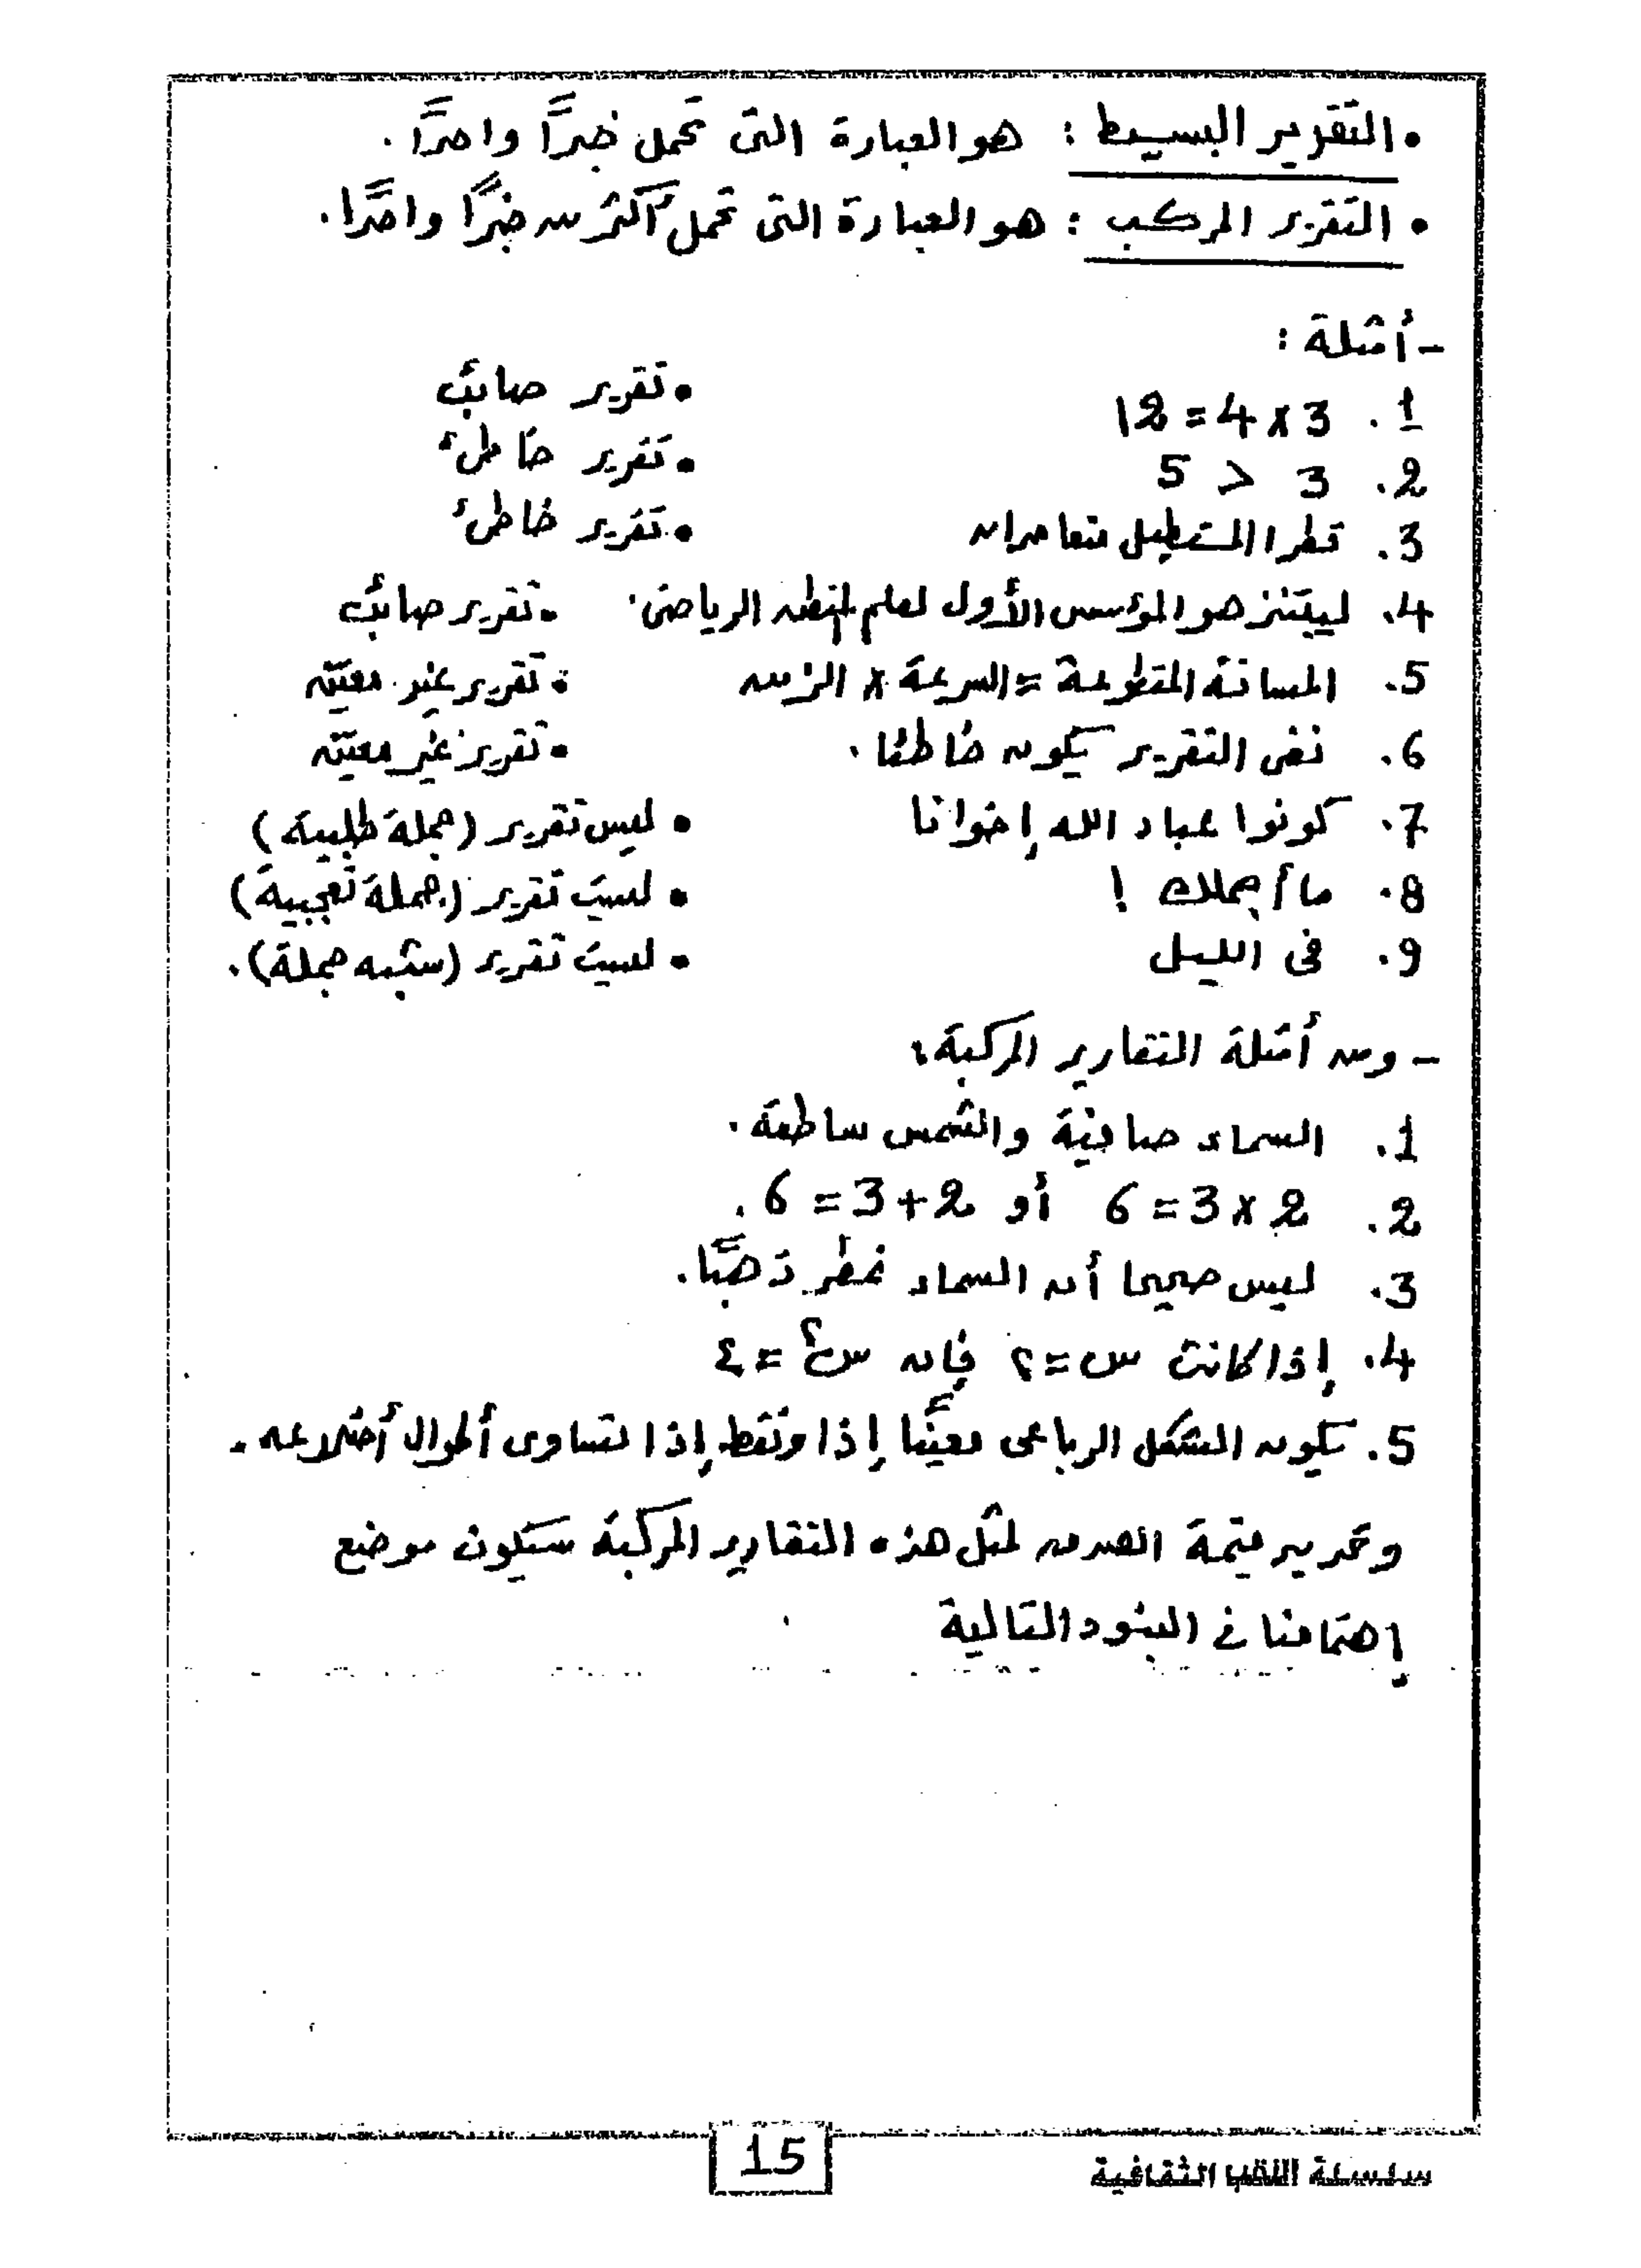 • التقرير البسيط : هو العبارة التى تحمل خبرًا واحدًا .
• التقرير المركب : هو العبارة التى تحمل أكثر من خبرًا واحدًا .
- أمثلة :
1. 3 × 4 = 12 • تقرير صائب
2. 3 > 5 • تقرير خاطئ
3. قطرا المستطيل متعامدان • تقرير خاطئ
4. ليبتنز هو المؤسس الأول لعلم المنطق الرياضى . • تقرير صائب
5. المسافة المقطوعة = السرعة × الزمن • تقرير غير معين
6. نفى التقرير يكون خاطئا . • تقرير غير معين
7. كونوا عباد الله إخوانا • ليس تقرير (جملة طلبية)
8. ما أجملك ! • ليست تقرير (جملة تعجبية)
9. فى الليل • ليست تقرير (شبه جملة) .
- ومن أمثلة التقارير المركبة :
1. السماء صافية والشمس ساطعة .
2. 2 × 3 = 6 أو 2 + 3 = 6 .
3. ليس صحيحا أن السماء تمطر ذهبًا .
4. إذا كانت س = ٢ فإن س٢ = ٤
5. يكون الشكل الرباعى معينًا إذا وفقط إذا تساوى أطوال أضلاعه .
وتحديد قيمة الصدق لمثل هذه التقارير المركبة ستكون موضع
إهتمامنا فى البنود التالية
15
سلسلة الثقافية